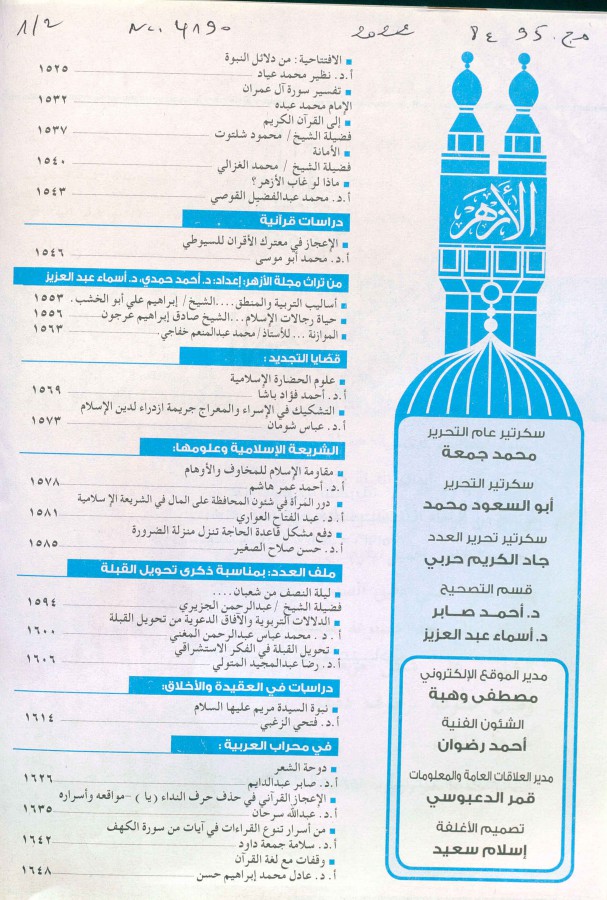 1/2 No. 4190 2022 مج. 95 ع 8
الافتتاحية: من دلائل النبوة
أ.د. نظير محمد عياد ١٥٢٥
تفسير سورة آل عمران
الإمام محمد عبده ١٥٣٢
إلى القرآن الكريم
فضيلة الشيخ / محمود شلتوت ١٥٣٧
الأمانة
فضيلة الشيخ / محمد الغزالي ١٥٤٠
ماذا لو غاب الأزهر؟
أ.د. محمد عبدالفضيل القوصي ١٥٤٣
دراسات قرآنية
الإعجاز في معترك الأقران للسيوطي
أ.د. محمد أبو موسى ١٥٤٦
من تراث مجلة الأزهر: إعداد: د. أحمد حمدي، د. أسماء عبد العزيز
أساليب التربية والمنطق....الشيخ/ إبراهيم علي أبو الخشب. ١٥٥٣
حياة رجالات الإسلام...الشيخ صادق إبراهيم عرجون ١٥٥٦
الموازنة ... للأستاذ/ محمد عبدالمنعم خفاجي. ١٥٦٣
قضايا التجديد:
علوم الحضارة الإسلامية
أ.د. أحمد فؤاد باشا ١٥٦٩
التشكيك في الإسراء والمعراج جريمة ازدراء لدين الإسلام
أ.د. عباس شومان ١٥٧٣
الشريعة الإسلامية وعلومها:
مقاومة الإسلام للمخاوف والأوهام
أ.د. أحمد عمر هاشم ١٥٧٨
دور المرأة في شئون المحافظة على المال في الشريعة الإسلامية
أ.د. عبد الفتاح العواري ١٥٨١
دفع مشكل قاعدة الحاجة تنزل منزلة الضرورة
أ.د. حسن صلاح الصغير ١٥٨٥
ملف العدد: بمناسبة ذكرى تحويل القبلة
ليلة النصف من شعبان....
فضيلة الشيخ / عبدالرحمن الجزيري ١٥٩٤
الدلالات التربوية والآفاق الدعوية من تحويل القبلة
أ . د . محمد عباس عبدالرحمن المغني ١٦٠٠
تحويل القبلة في الفكر الاستشراقي
أ.د. رضا عبدالمجيد المتولي ١٦٠٦
دراسات في العقيدة والأخلاق:
نبوة السيدة مريم عليها السلام
أ.د. فتحي الزغبي ١٦١٤
في محراب العربية :
دوحة الشعر
أ.د. صابر عبدالدايم ١٦٢٦
الإعجاز القرآني في حذف حرف النداء (يا) -مواقعه وأسراره
أ.د. عبدالله سرحان ١٦٣٥
من أسرار تنوع القراءات في آيات من سورة الكهف
أ.د. سلامة جمعة داود ١٦٤٢
وقفات مع لغة القرآن
أ.د. عادل محمد إبراهيم حسن ١٦٤٨
الأزهر
سكرتير عام التحرير
محمد جمعة
سكرتير التحرير
أبو السعود محمد
سكرتير تحرير العدد
جاد الكريم حربي
قسم التصحيح
د. أحمد صابر
د. أسماء عبد العزيز
مدير الموقع الإلكتروني
مصطفى وهبة
الشئون الفنية
أحمد رضوان
مدير العلاقات العامة والمعلومات
قمر الدعبوسي
تصميم الأغلفة
إسلام سعيد